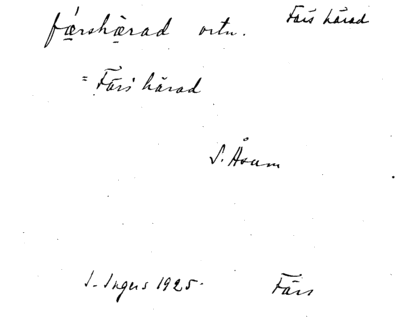 färshärad ortn. Färs härad
= Färs härad
S. Åsum
S. Ingers 1925. Färs